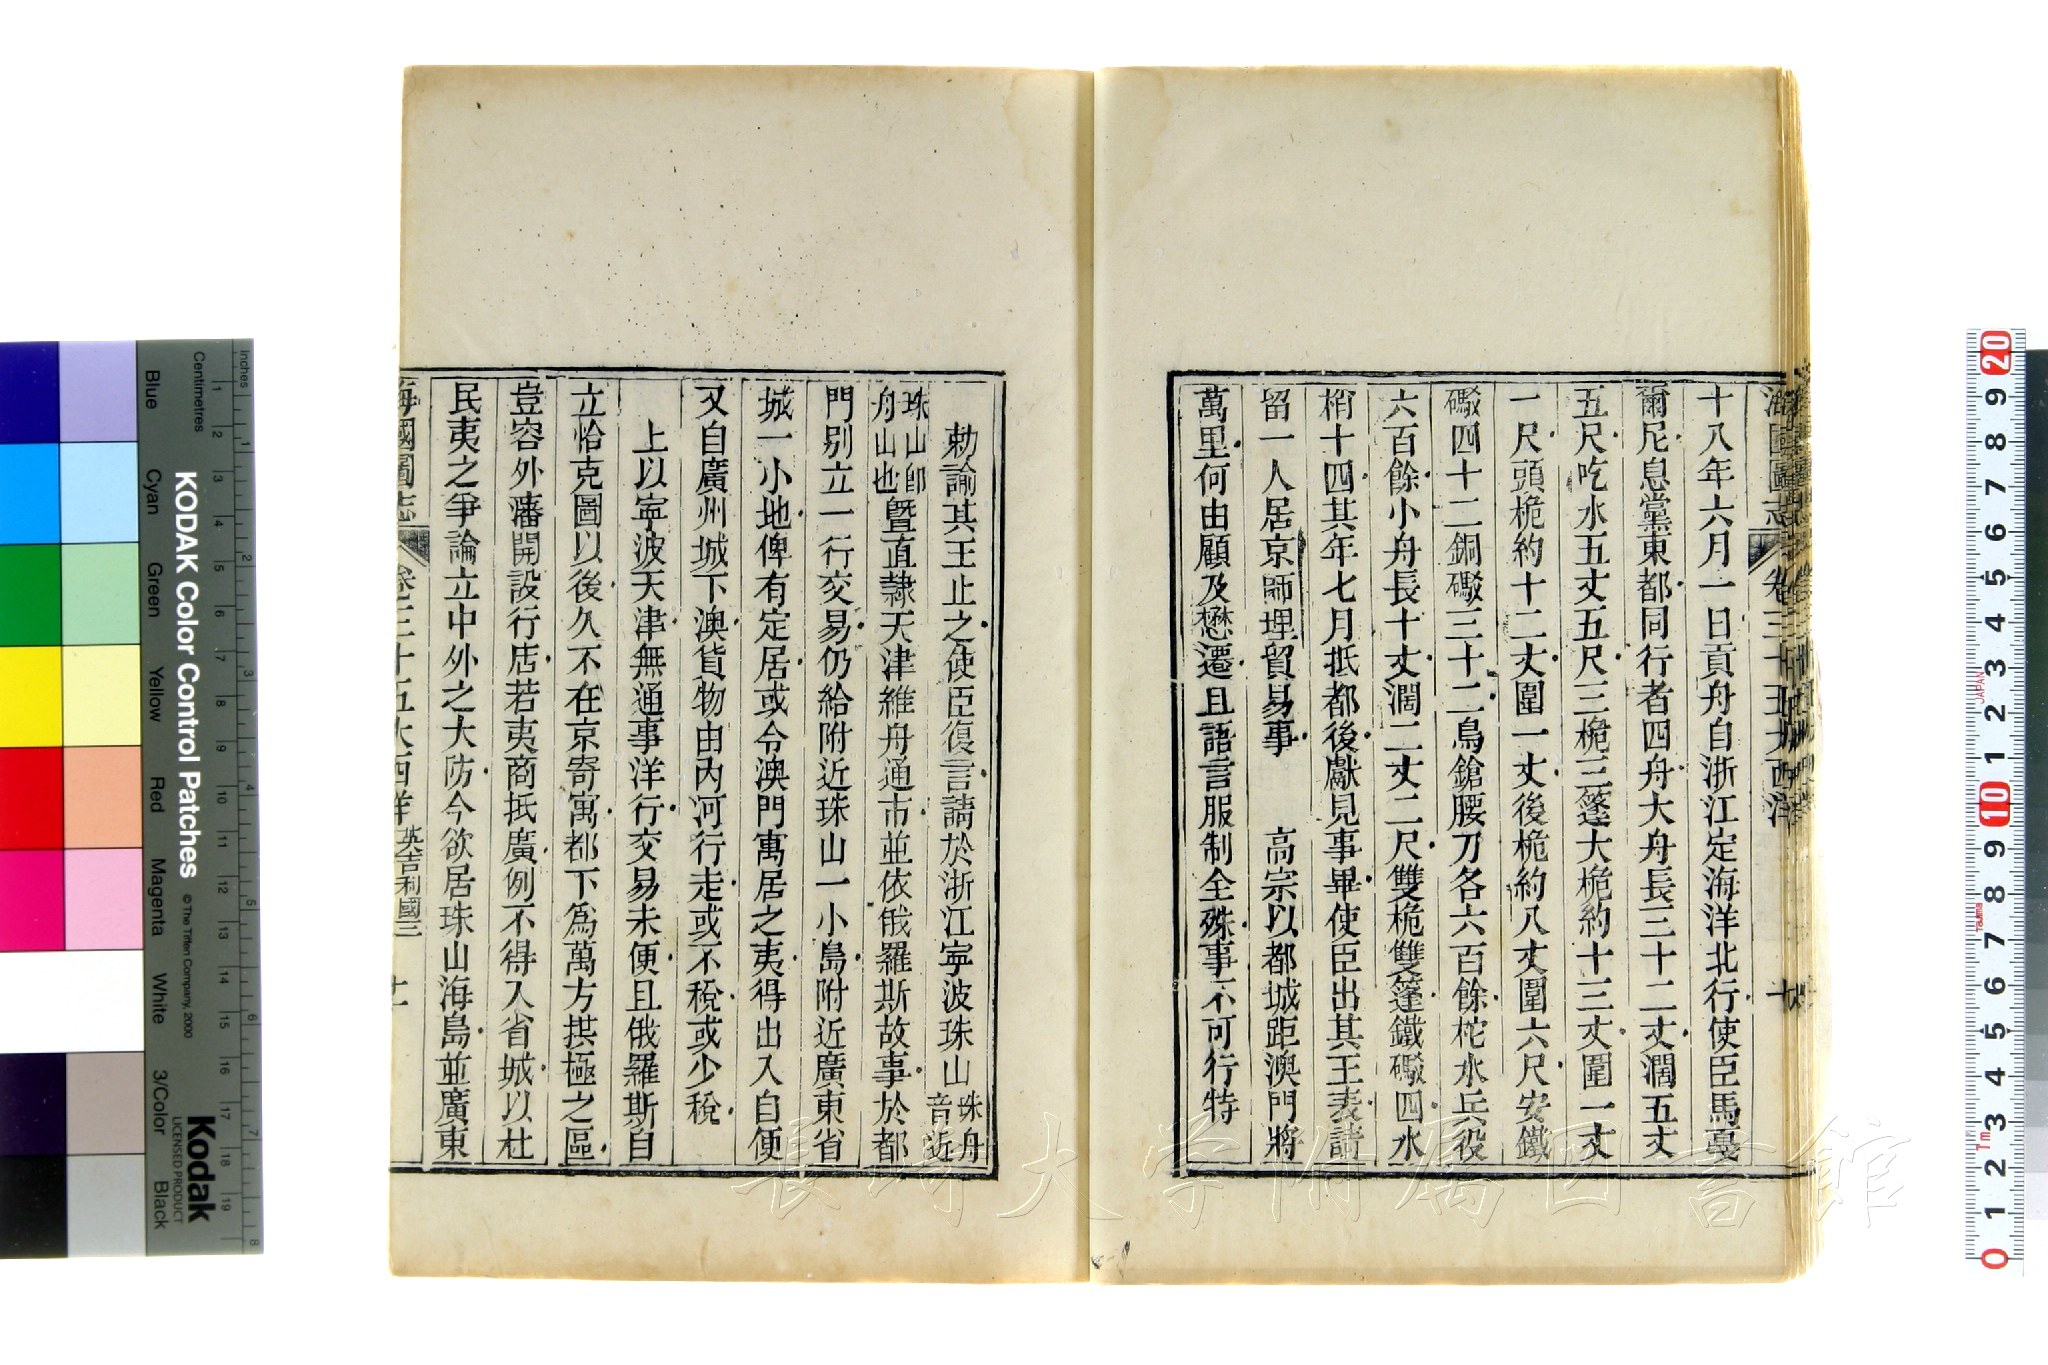 海國圖志 卷三十五大西洋 十
十八年六月一日貢舟自浙江定海洋北行使臣馬戛
爾尼息黨東都同行者四舟大舟長三十二丈濶五丈
五尺吃水五丈五尺三桅三篷大桅約十三丈圍一丈
一尺頭桅約十二丈圍一丈後桅約八丈圍六尺安鐵
礮四十二銅礮三十二鳥鎗腰刀各六百餘柁水兵役
六百餘小舟長十丈濶二丈二尺雙桅雙篷鐵礮四水
梢十四其年七月抵都後獻見事畢使臣出其王表請
留一人居京師理貿易事 高宗以都城距澳門將
萬里何由顧及懋遷且語言服制全殊事不可行特
勅諭其王止之使臣復言請於浙江寧波珠山珠舟音近
珠山即舟山也曁直隸天津維舟通市並依俄羅斯故事於都
門別立一行交易仍給附近珠山一小島附近廣東省
城一小地俾有定居或令澳門寓居之夷得出入自便
又自廣州城下澳貨物由內河行走或不稅或少稅
上以寧波天津無通事洋行交易未便且俄羅斯自
立恰克圖以後久不在京寄寓都下爲萬方拱極之區
豈容外藩開設行店若夷商抵廣例不得入省城以杜
民夷之爭論立中外之大防今欲居珠山海島並廣東
海國圖志 卷三十五大西洋 英吉利國三 十一
KODAK Color Control Patches
© The Tiffen Company, 2000
Kodak
LICENSED PRODUCT
Inches
Centimetres
Blue Cyan Green Yellow Red Magenta White 3/Color Black
長崎大学附属図書館